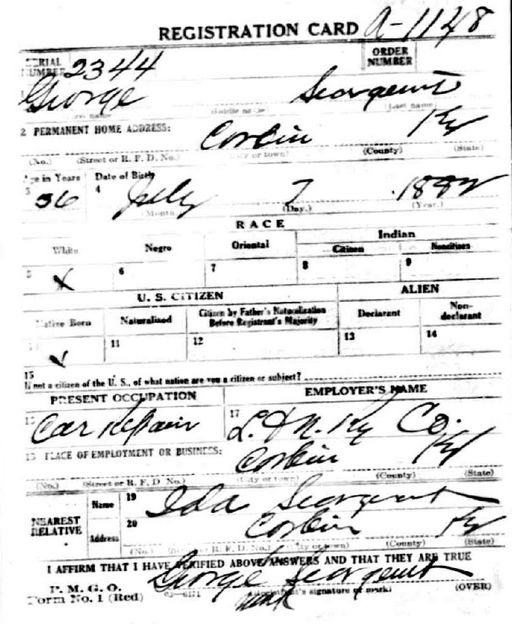 REGISTRATION CARD A-1148
SERIAL NUMBER 2344 ORDER NUMBER
George Seargent
(Middle name) (Last name)
2 PERMANENT HOME ADDRESS: Corbin Ky
(No.) (Street or R. F. D. No.) (City or town) (County) (State)
Age in Years Date of Birth
3 36 4 July 7 1882
(Month) (Day.) (Year.)
RACE
White Negro Oriental Indian
Citizen Noncitizen
5 X 6 7 8 9
U. S. CITIZEN ALIEN
Native Born Naturalized Citizen by Father's Naturalization Before Registrant's Majority Declarant Non-declarant
11 12 13 14
15
If not a citizen of the U. S., of what nation are you a citizen or subject?
PRESENT OCCUPATION EMPLOYER'S NAME
16 Car Repair 17 L. & N. Ry Co.
18 PLACE OF EMPLOYMENT OR BUSINESS: Corbin Ky
(No.) (Street or R. F. D. No.) (City or town) (County) (State)
NEAREST RELATIVE Name 19 Ida Seargent
Address 20 Corbin Ky
(No.) (Street or R. F. D. No.) (City or town) (County) (State)
I AFFIRM THAT I HAVE VERIFIED ABOVE ANSWERS AND THAT THEY ARE TRUE
P. M. G. O. George Seargent
Form No. 1 (Red) (Registrant's signature or mark) (OVER)
mark